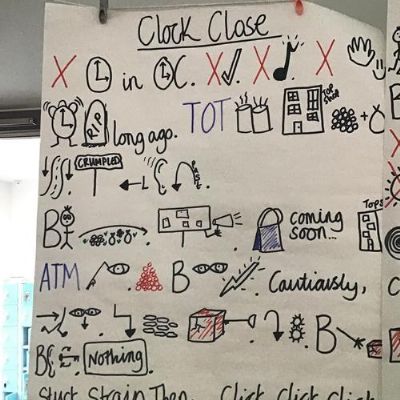 Clock Close
X L in L C. X X X
RIP long ago. TOT TOP SHOP +
CRUMPLED PAST
B coming soon... Tops
ATM B Cautiously,
B
BE Nothing.
Stuck Strain Then, Click Click Click